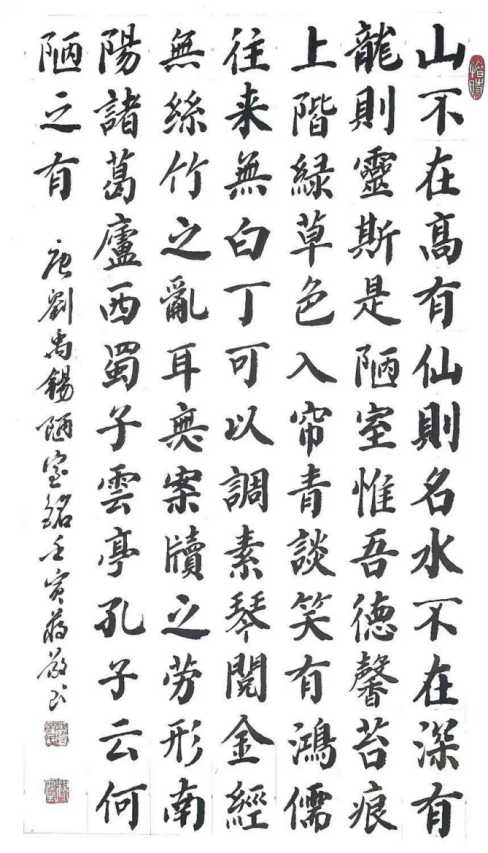 山不在高有仙則名水不在深有
龍則靈斯是陋室惟吾德馨苔痕
上階緑草色入帘青談笑有鴻儒
往来無白丁可以調素琴閱金經
無絲竹之亂耳無案牘之劳形南
陽諸葛廬西蜀子雲亭孔子云何
陋之有
唐劉禹錫陋室銘壬寅蒋书